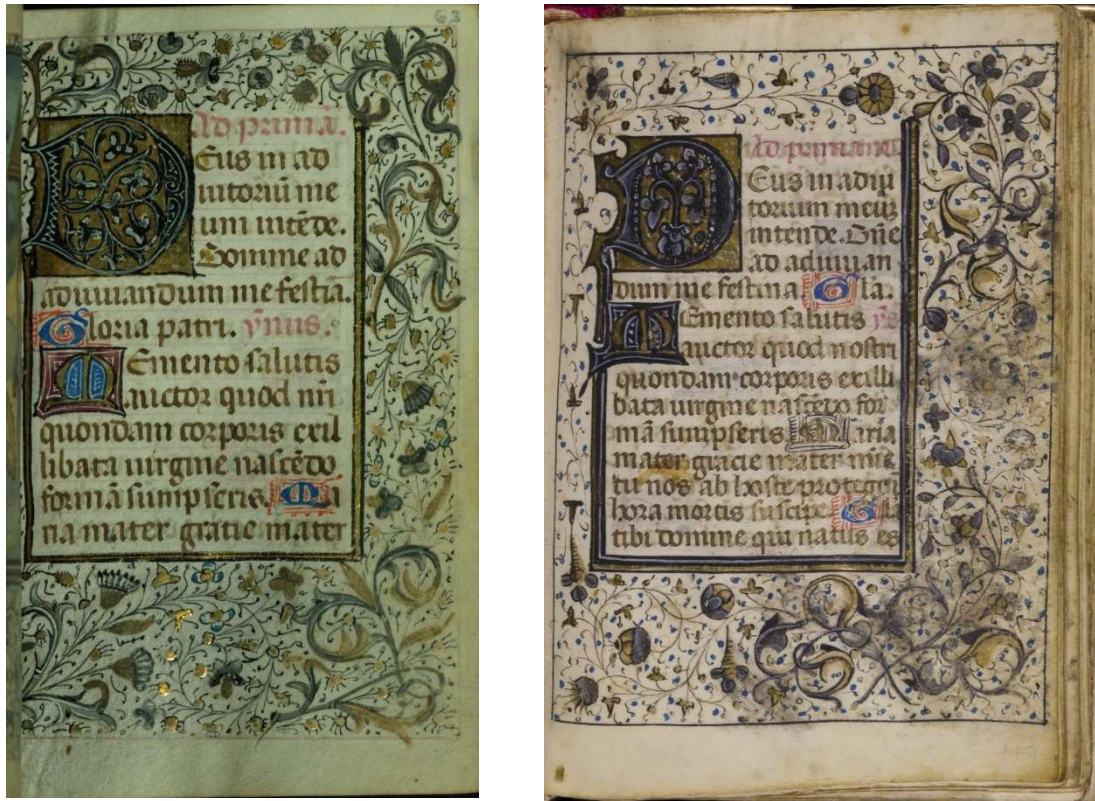 63
Ad primā.
Deus in ad
iutoriū me
um intēde.
Domine ad
adiuuandum me festīa.
Gloria patri. ymus.
Memento salutis
auctor quod nrī
quondam corporis exil
libata uirgine nascēdo
formā sumpseris. Ma
ria mater gratie mater
Ad primam
Deus in adiu
torium meuz
intende. Dn̄e
ad adiuuan
dum me festina Gla.
Memento salutis ys
auctor quod nostri
quondam corporis exilli
bata uirgine nascēdo for
mā sumpseris Maria
mater gracie mater mīe
tu nos ab hoste protege
hora mortis suscipe Gla
tibi domine qui natus es